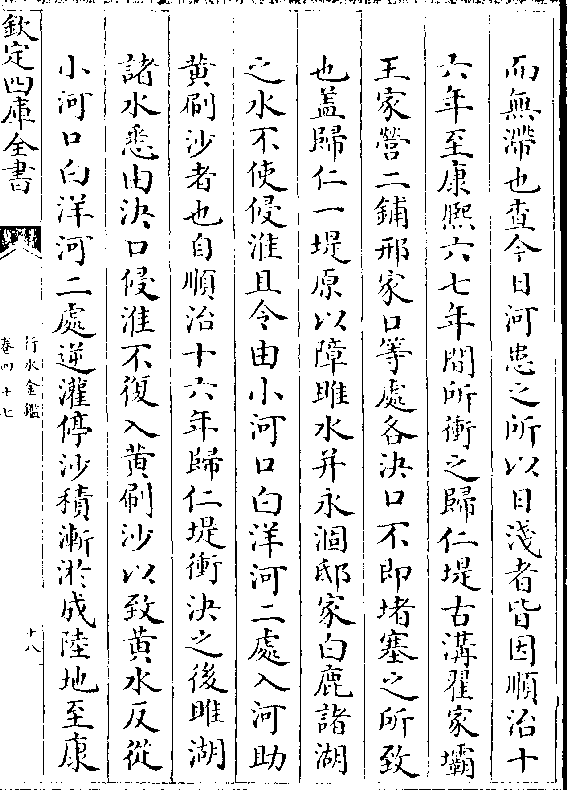 而無滯也查今日河患之所以日淺者皆因順治十
六年至康熙六七年間所衝之歸仁堤古溝翟家壩
王家營二鋪邢家口等處各決口不即堵塞之所致
也蓋歸仁一堤原以障睢水并永涸邸家白鹿諸湖
之水不使侵淮且令由小河口白洋河二處入河助
黄刷沙者也自順治十六年歸仁堤衝決之後睢湖
諸水悉由決口侵淮不復入黄刷沙以致黄水反從
小河口白洋河二處逆灌停沙積漸淤成陸地至康
欽定四庫全書
行水金鑑
卷四十七
十八